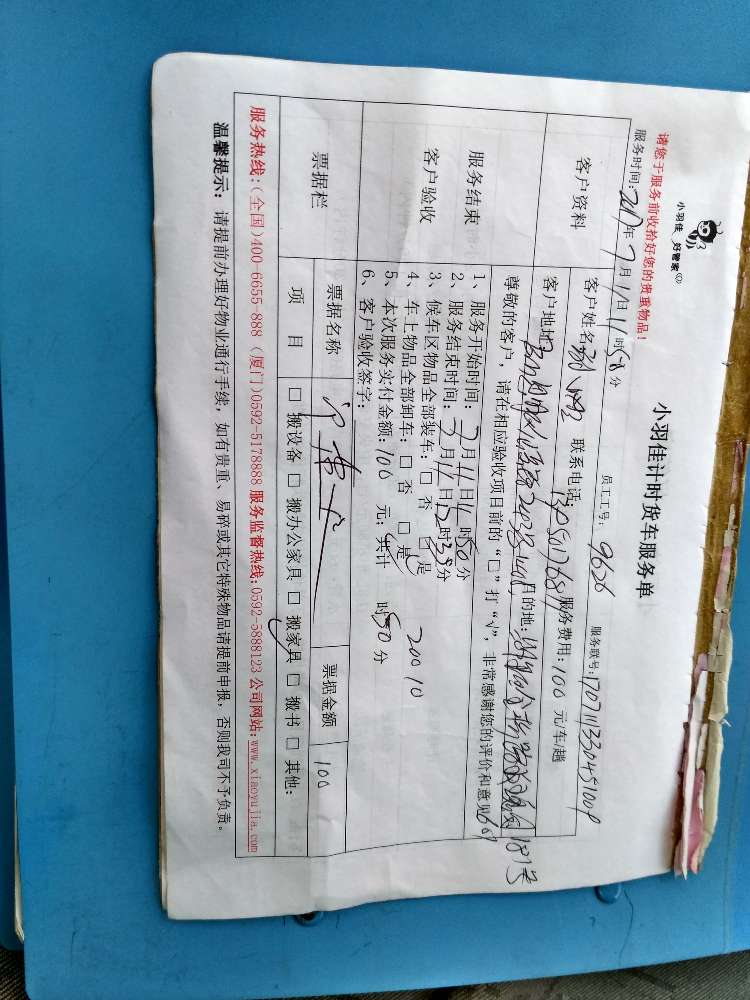 小羽佳 好管家
小羽佳计时货车服务单
请您于服务前收拾好您的贵重物品！
员工工号：9626 服务联号：
服务时间：2017年7月11日11时50分
客户资料 客户姓名： 联系电话： 服务费用：100元/车/趟
客户地址： 目的地： 181号
尊敬的客户，请在相应验收项目前的“口”打“√”，非常感谢您的评价和意见
服务结束
客户验收
1、服务开始时间：7月11日11时50分
2、服务结束时间：7月11日12时38分
3、候车区物品全部装车：□否 □是
4、车上物品全部卸车：□否 □是
5、本次服务实付金额：100元；共计 时50分
6、客户验收签字：
票据栏 票据名称 票据金额 100
项目 □搬设备 □搬办公家具 □搬家具 □搬书 □其他：
服务热线：(全国)400-6655-888 (厦门)0592-5178888 服务监督热线：0592-5888123 公司网站：www.xiaoyujia.com
温馨提示：请提前办理好物业通行手续，如有贵重、易碎或其它特殊物品请提前申报，否则我司不予负责。